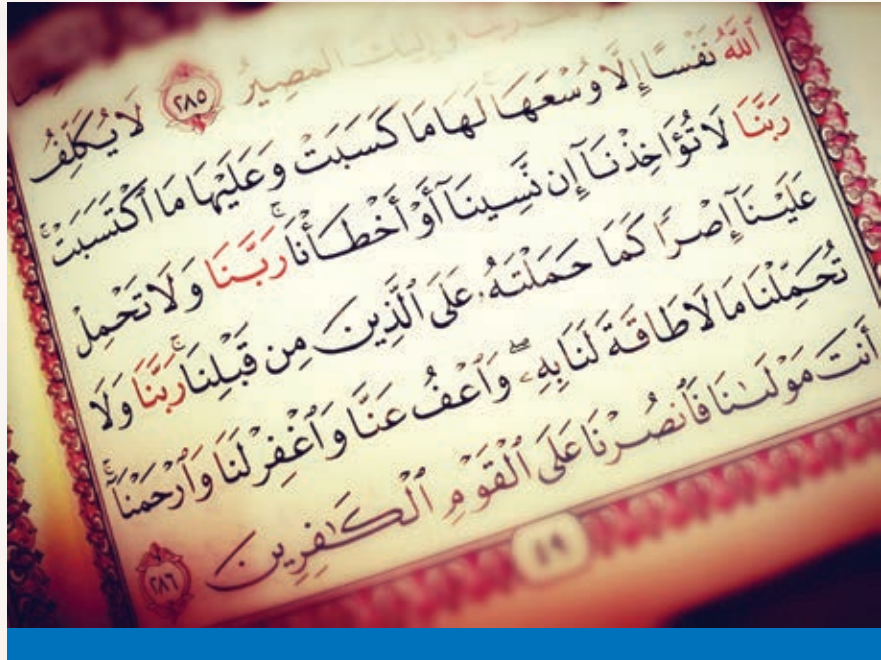 وَإِلَيْكَ ٱلْمَصِيرُ ٢٨٥ لَا يُكَلِّفُ
ٱللَّهُ نَفْسًا إِلَّا وُسْعَهَا لَهَا مَا كَسَبَتْ وَعَلَيْهَا مَا ٱكْتَسَبَتْ ۗ
رَبَّنَا لَا تُؤَاخِذْنَآ إِن نَّسِينَآ أَوْ أَخْطَأْنَا ۚ رَبَّنَا وَلَا تَحْمِلْ
عَلَيْنَآ إِصْرًا كَمَا حَمَلْتَهُۥ عَلَى ٱلَّذِينَ مِن قَبْلِنَا ۚ رَبَّنَا وَلَا
تُحَمِّلْنَا مَا لَا طَاقَةَ لَنَا بِهِۦ ۖ وَٱعْفُ عَنَّا وَٱغْفِرْ لَنَا وَٱرْحَمْنَآ ۚ
أَنتَ مَوْلَىٰنَا فَٱنصُرْنَا عَلَى ٱلْقَوْمِ ٱلْكَٰفِرِينَ ٢٨٦
٤٩